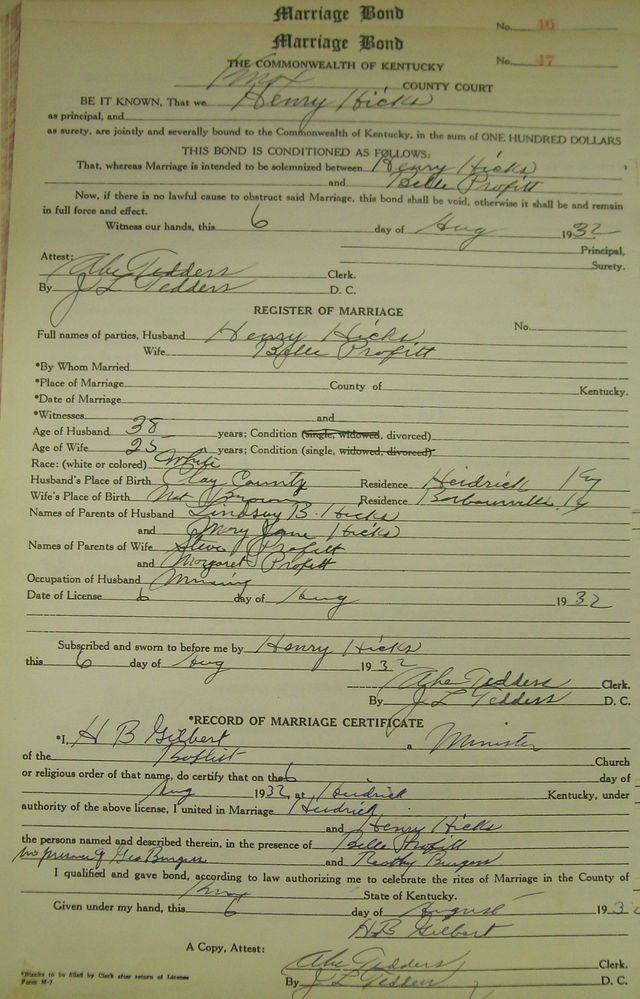 Marriage Bond
No. 46
Marriage Bond
No. 47
THE COMMONWEALTH OF KENTUCKY
Knox COUNTY COURT
BE IT KNOWN, That we Henry Hicks
as principal, and
as surety, are jointly and severally bound to the Commonwealth of Kentucky, in the sum of ONE HUNDRED DOLLARS
THIS BOND IS CONDITIONED AS FOLLOWS:
That, whereas Marriage is intended to be solemnized between Henry Hicks
and Belle Profitt
Now, if there is no lawful cause to obstruct said Marriage, this bond shall be void, otherwise it shall be and remain
in full force and effect.
Witness our hands, this 6 day of Aug 1932
Principal,
Surety.
Attest:
Abe Tedders Clerk.
By J L Tedders D. C.
REGISTER OF MARRIAGE
No.
Full names of parties, Husband Henry Hicks
Wife Belle Profitt
*By Whom Married
*Place of Marriage County of Kentucky.
*Date of Marriage
*Witnesses and
Age of Husband 38 years; Condition (single, widowed, divorced)
Age of Wife 25 years; Condition (single, widowed, divorced)
Race: (white or colored) White
Husband's Place of Birth Clay County Residence Heidrick Ky
Wife's Place of Birth Not Residence Barbourville Ky
Names of Parents of Husband Lindsay B. Hicks
and Mary Jane Hicks
Names of Parents of Wife Steve Profitt
and Margaret Profitt
Occupation of Husband Mining
Date of License 6 day of Aug 1932
Subscribed and sworn to before me by Henry Hicks
this 6 day of Aug 1932
Abe Tedders Clerk.
By J L Tedders D. C.
*RECORD OF MARRIAGE CERTIFICATE
*I, H B Gilbert a Minister
of the Baptist Church
or religious order of that name, do certify that on the 6 day of
Aug 1932, at Heidrick Kentucky, under
authority of the above license, I united in Marriage Heidrick
and Henry Hicks
the persons named and described therein, in the presence of Belle Profitt
in presence of Geo Burgess and Burgess
I qualified and gave bond, according to law authorizing me to celebrate the rites of Marriage in the County of
Knox State of Kentucky.
Given under my hand, this 6 day of August 193
H B Gilbert
A Copy, Attest:
Abe Tedders Clerk.
By J L Tedders D. C.
*Blanks to be filled by Clerk after return of License
Form M-7